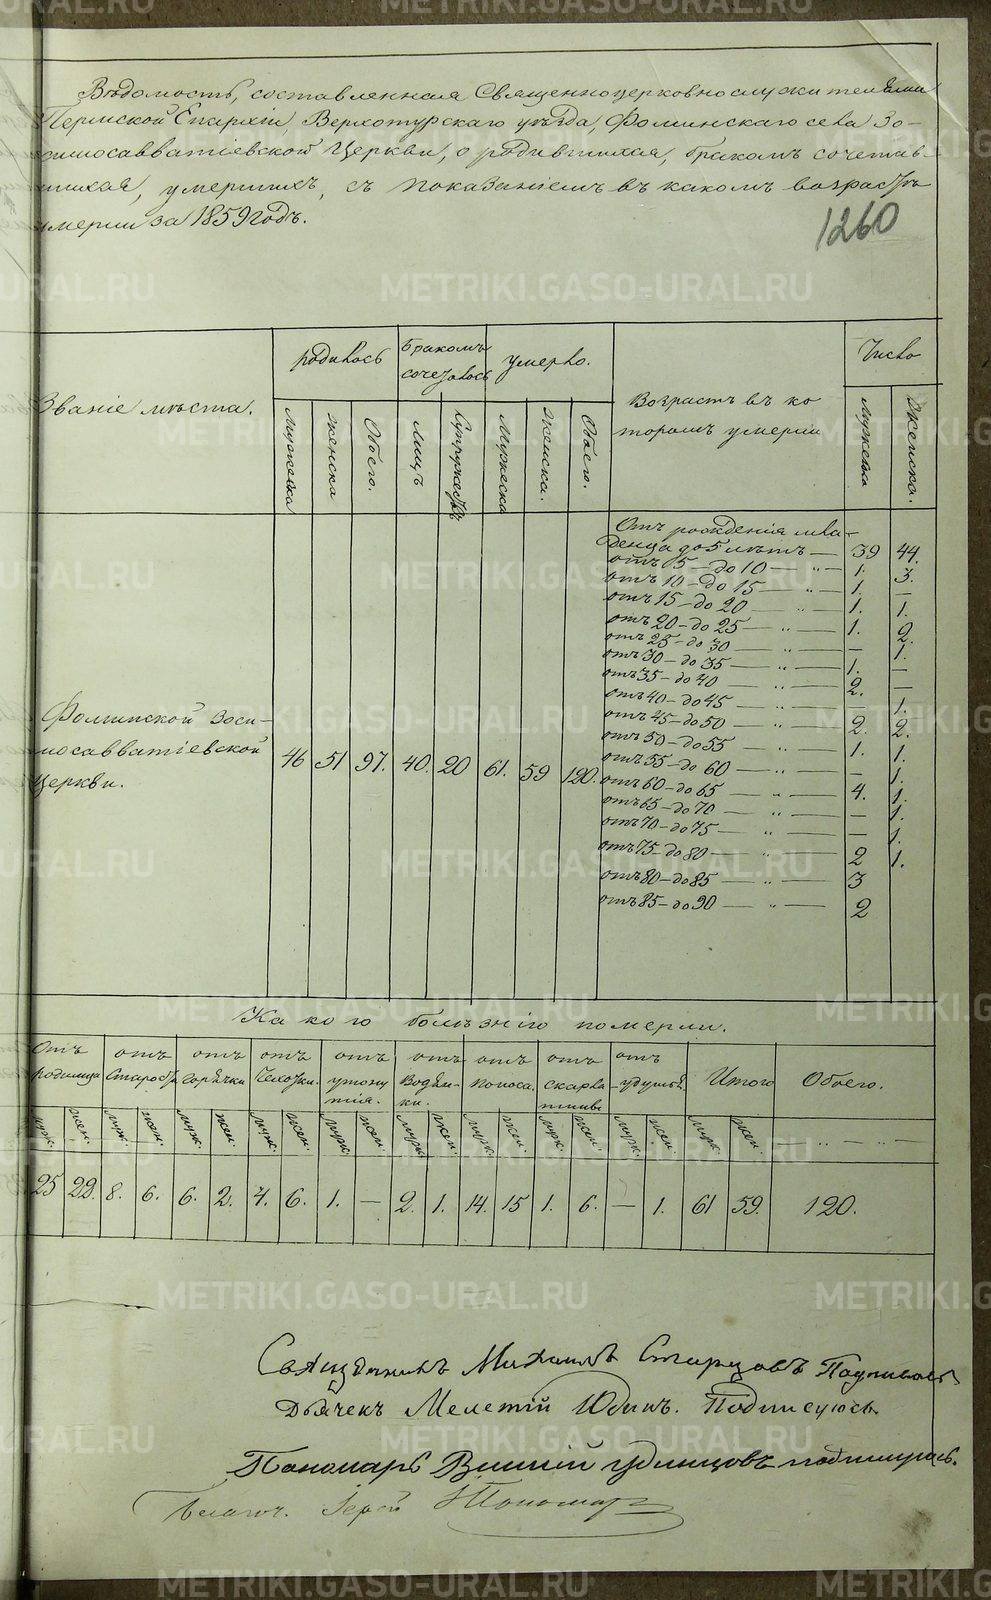 Вѣдомость, составленная Священноцерковнослужителями
Пермской Епархіи, Верхотурскаго уѣзда, Фоминскаго села Зо-
симосавватіевской Церкви, о родившихся, бракомъ сочетав-
шихся, умершихъ, съ показаніемъ въ какомъ возрастѣ
умерли за 1859 годъ.
1260
Званіе мѣста.
родилось
Бракомъ сочеталось
умерло.
Возрастъ въ ко
торомъ умерли
Число
Мужеска
Женска
Обоего.
Лицъ
Супружествъ
Мужеска
Женска.
Обоего.
Мужеска
Женска.
Фоминской Зоси-
мосавватіевской
Церкви.
46 51 97. 40. 20 61. 59 120.
Отъ рожденія мла-
денца до 5 лѣтъ — 39 44.
отъ 5 — до 10 — „ — 1. 3.
отъ 10 — до 15 — „ — 1. —
отъ 15 — до 20 — „ — 1. 1.
отъ 20 — до 25 — „ — 1. 2.
отъ 25 — до 30 — „ — — 1.
отъ 30 — до 35 — „ — 1. —
отъ 35 — до 40 — „ — 2. —
отъ 40 — до 45 — „ — — 1.
отъ 45 — до 50 — „ — 2. 2.
отъ 50 — до 55 — „ — 1. 1.
отъ 55 — до 60 — „ — — 1.
отъ 60 — до 65 — „ — 4. 1.
отъ 65 — до 70 — „ — — 1.
отъ 70 — до 75 — „ — — 1.
отъ 75 — до 80 — „ — 2 1.
отъ 80 — до 85 — „ — 3
отъ 85 — до 90 — „ — 2
Какого болѣзнію померли.
Отъ родимца
отъ Старости
отъ Горячки
отъ Чехотки.
отъ утону тія.
отъ Водян- ки.
отъ поноса.
отъ скарла тины
отъ удушья
Итого
Обоего.
муж. жен. муж. жен. муж. жен. муж. жен. муж. жен. муж. жен. муж. жен. муж. жен. муж. жен. муж. жен.
25 22. 8. 6. 6. 2. 4. 6. 1. — 2. 1. 14. 15 1. 6. — 1. 61 59. 120.
Священникъ Михаилъ Старцовъ
Дьячекъ Мелетій Юдинъ. Подписуюсь.
Пономарь Удинцовъ подпишуюсь.
Іерей
METRIKI.GASO-URAL.RU